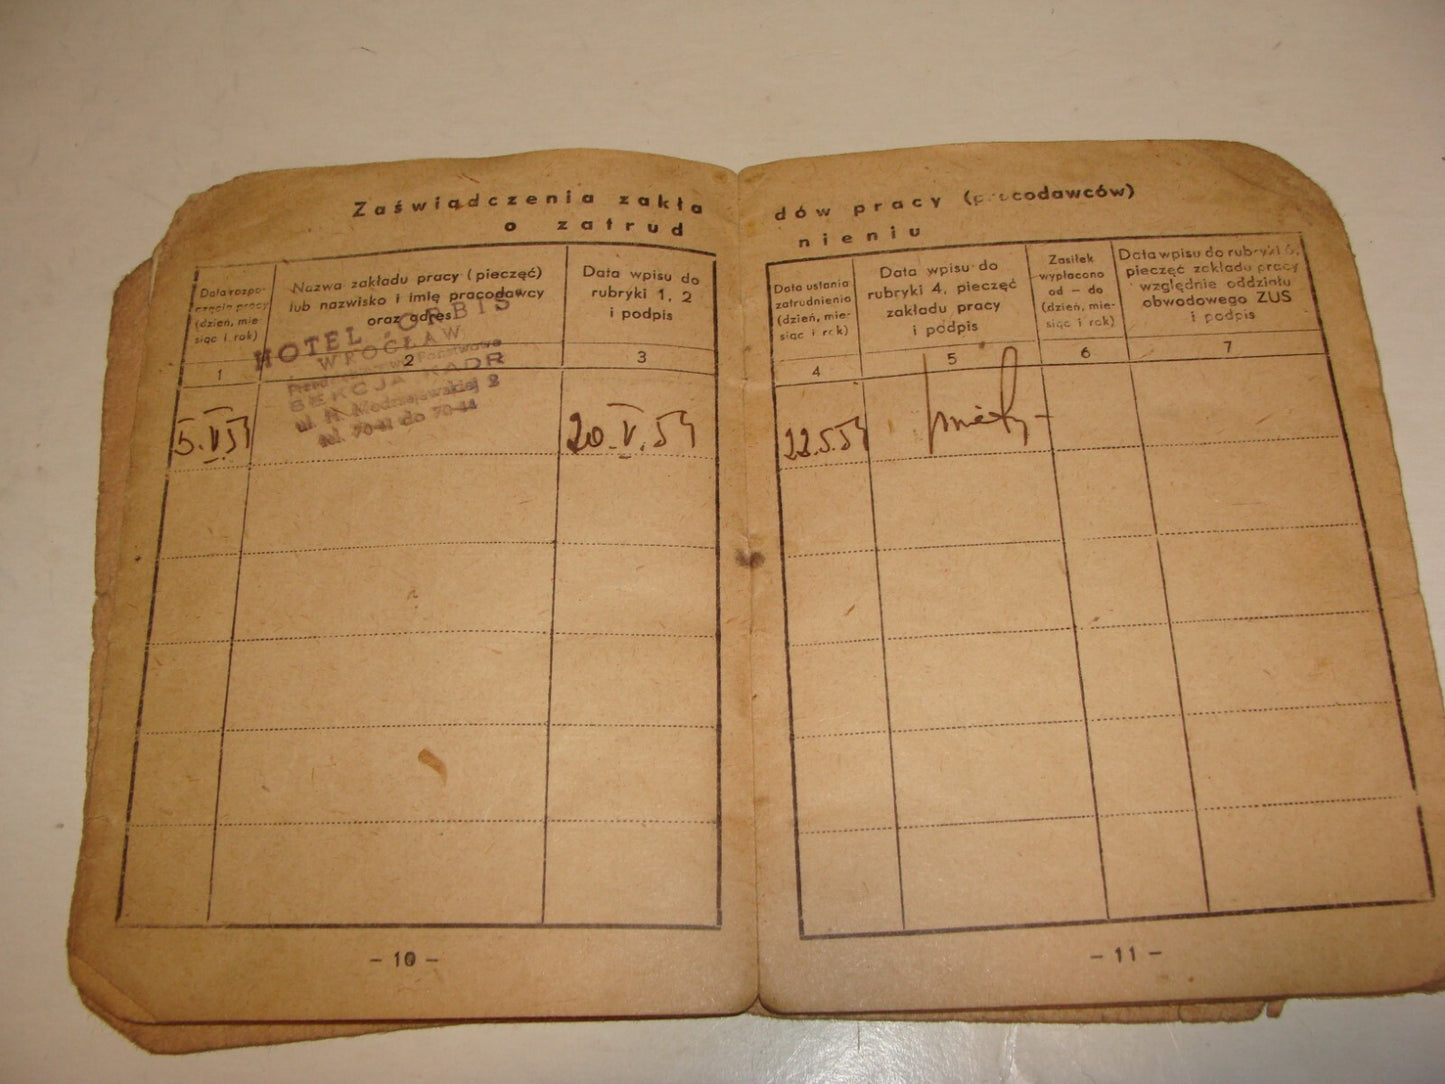 Zaświadczenia zakła
o zatrud
Data rozpo-
częcia pracy
(dzień, mie-
siąc i rok)
Nazwa zakładu pracy (pieczęć)
lub nazwisko i imię pracodawcy
oraz adres
Data wpisu do
rubryki 1, 2
i podpis
1
2
3
HOTEL „ORBIS"
WROCŁAW
Państwowe
SEKCJA KADR
ul. H. Modrzejewskiej 2
tel. 70-41 do 70-44
5.VI.54
20.V.54
– 10 –
dów pracy (pracodawców)
nieniu
Data ustania
zatrudnienia
(dzień, mie-
siąc i rok)
Data wpisu do
rubryki 4, pieczęć
zakładu pracy
i podpis
Zasiłek
wypłacono
od – do
(dzień, mie-
siąc i rok)
Data wpisu do rubryki 6,
pieczęć zakładu pracy
względnie oddziału
obwodowego ZUS
i podpis
4
5
6
7
22.5.54
– 11 –